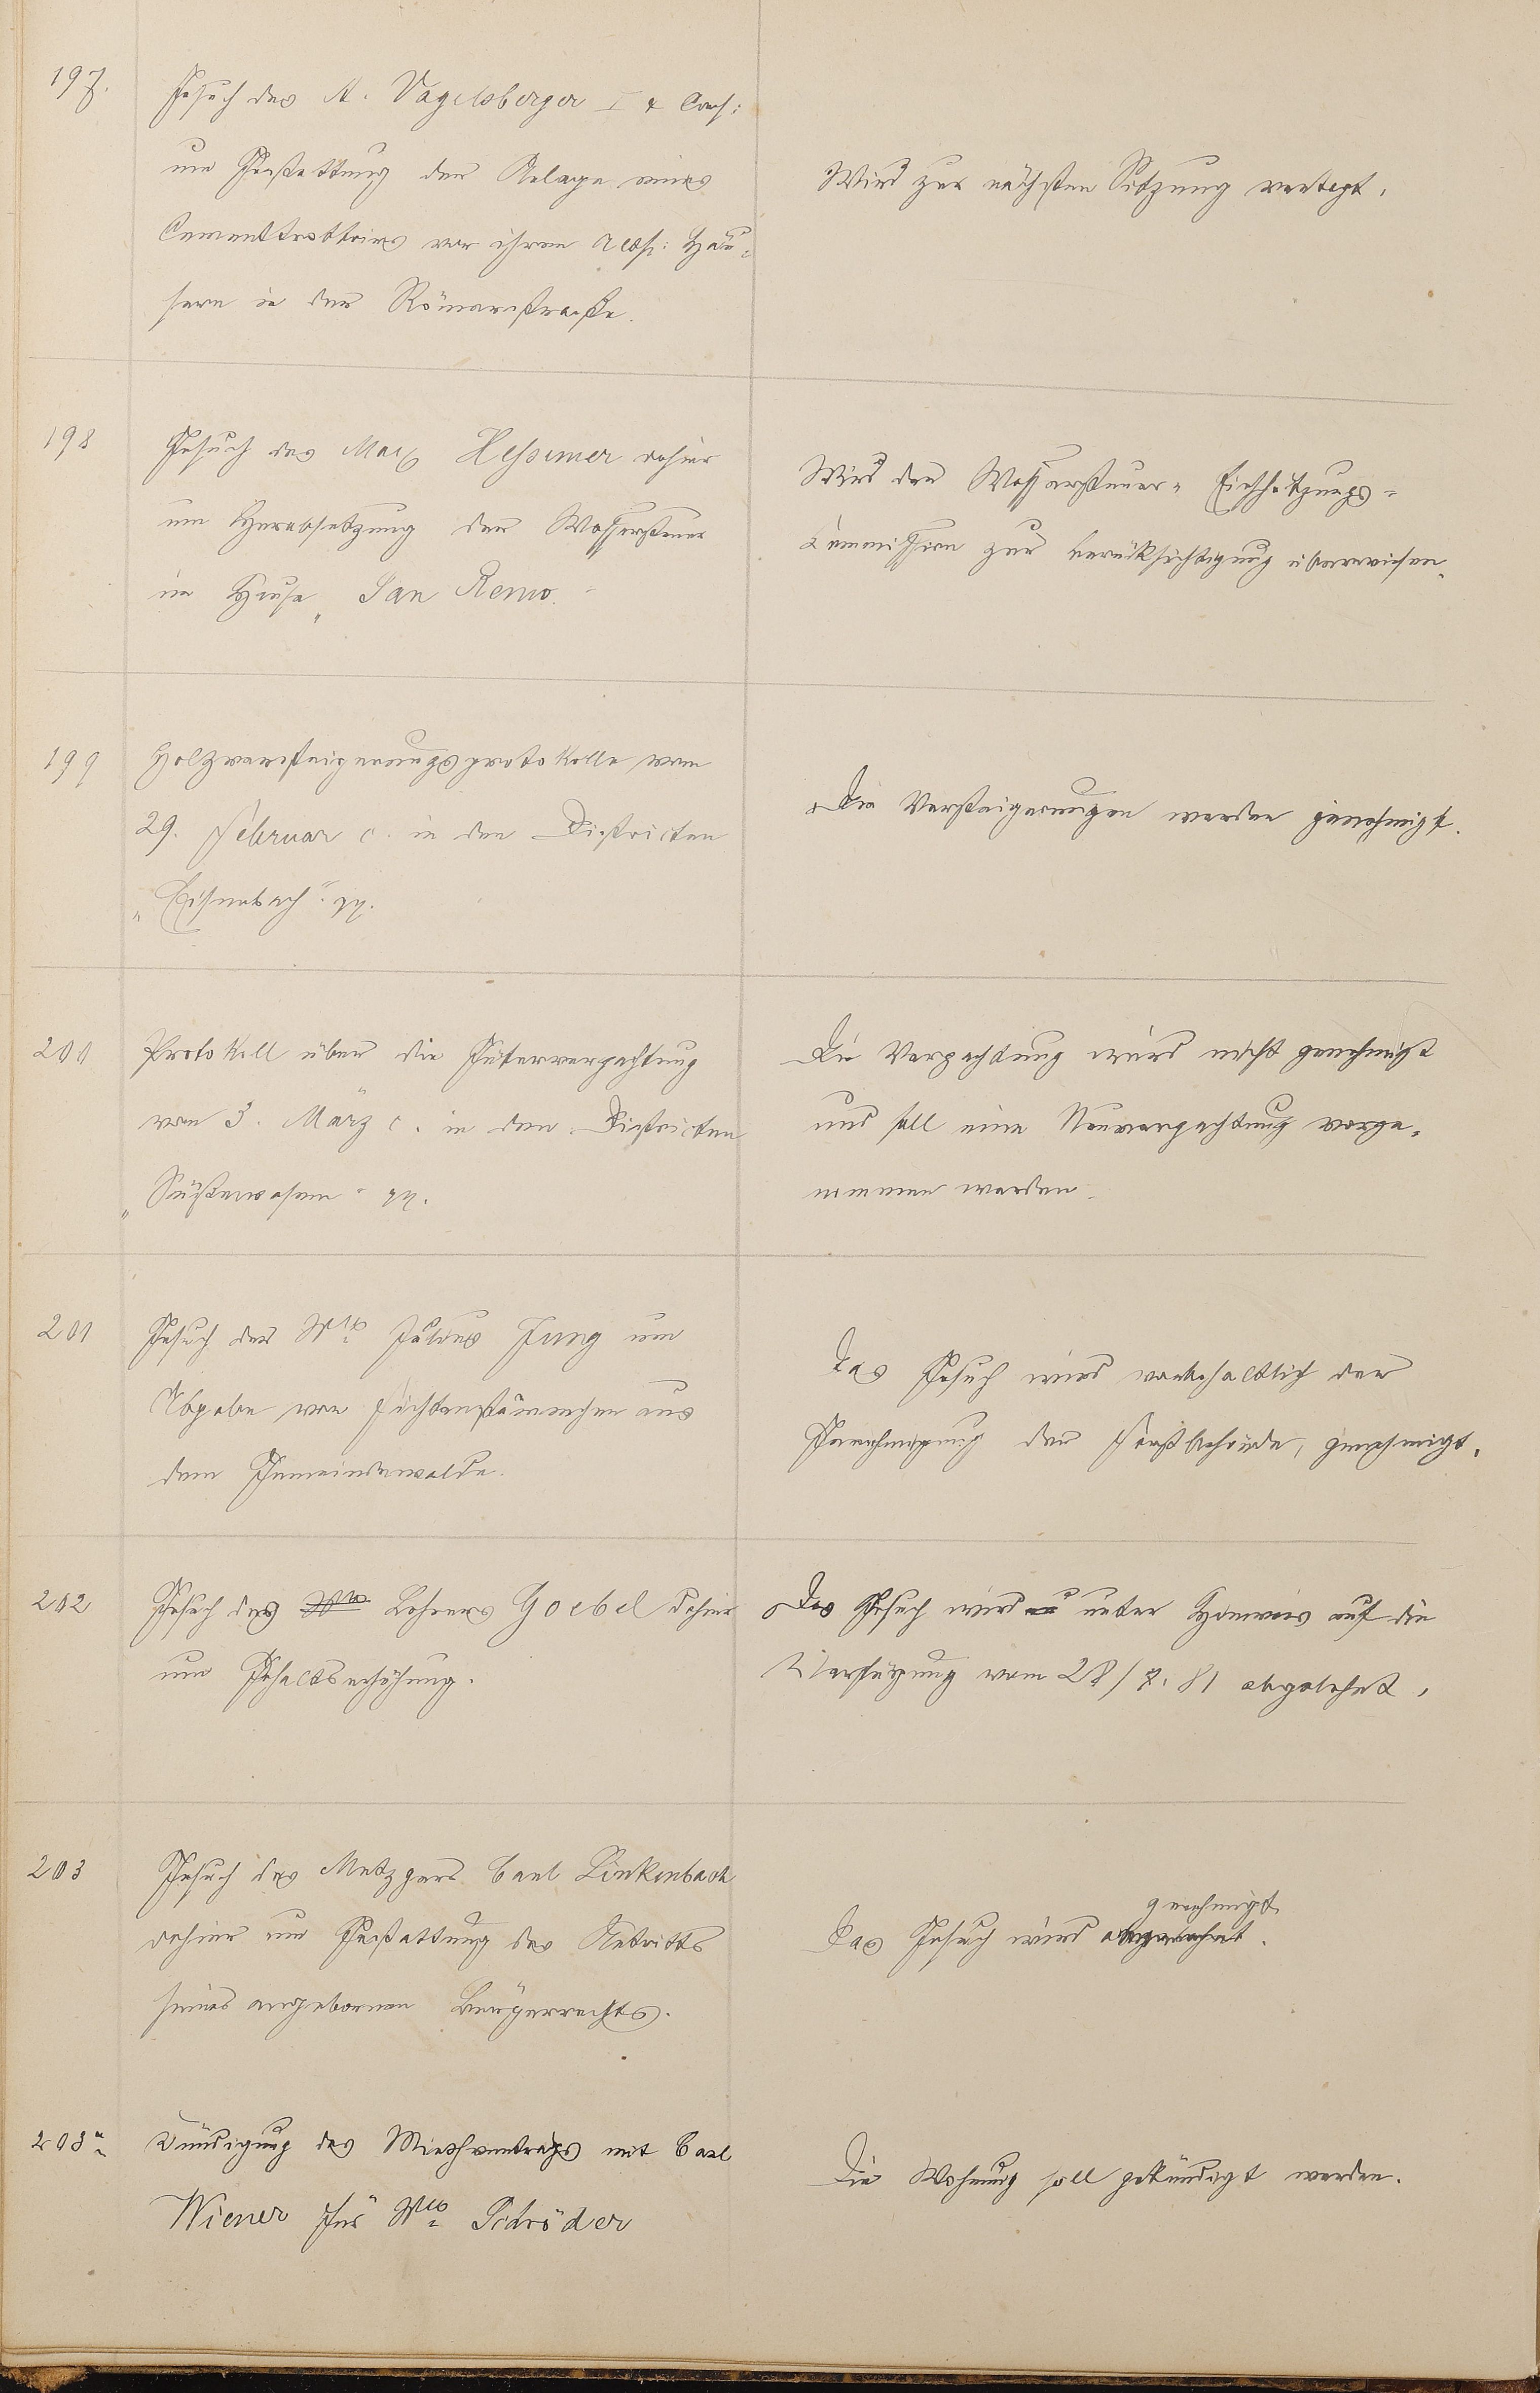 197.
Gesuch des A. Vogelsberger I & Cons:
um Gestattung der Anlage eines
Cementtrottoirs vor ihren resp: Häu-
sern in der Römerstraße.
Wird zur nächsten Sitzung vertagt.
198
Gesuch des Max Hessemer dahier
um Herabsetzung der Wassersteuer
im Hause „San Remo.
Wird der Wassersteuer-Einschätzungs-
Commission zur Berücksichtigung überwiesen.
199
Holzversteigerungsprotokolle vom
29. Februar c. in den Districten
„Eisenbach“ pp.
Die Versteigerungen werden genehmigt.
200
Protokoll über die Güterverpachtung
vom 3. März c. in den Districten
„Süßenwasem“ pp.
Die Verpachtung wird nicht genehmigt
und soll eine Neuverpachtung vorge-
nommen werden.
201
Gesuch der Wwe Julius Jung um
Abgabe von Fichtenstämmchen aus
dem Gemeindewalde.
Das Gesuch wird vorbehaltlich der
Genehmigung der Forstbehörde, genehmigt.
202
Gesuch des Wwe Lehrers Goebel dahier
um Gehaltserhöhung.
Das Gesuch wird unter Hinweis auf die
Verfügung vom 28/7. 81 abgelehnt.
203
Gesuch des Metzgers Carl Linkenbach
dahier um Gestattung des Antritts
seines angebornen Bürgerrechts.
genehmigt
Das Gesuch wird abgelehnt.
203a
Kündigung des Miethvertrags mit Carl
Wiener für Wwe Schröder
Die Wohnung soll gekündigt werden.